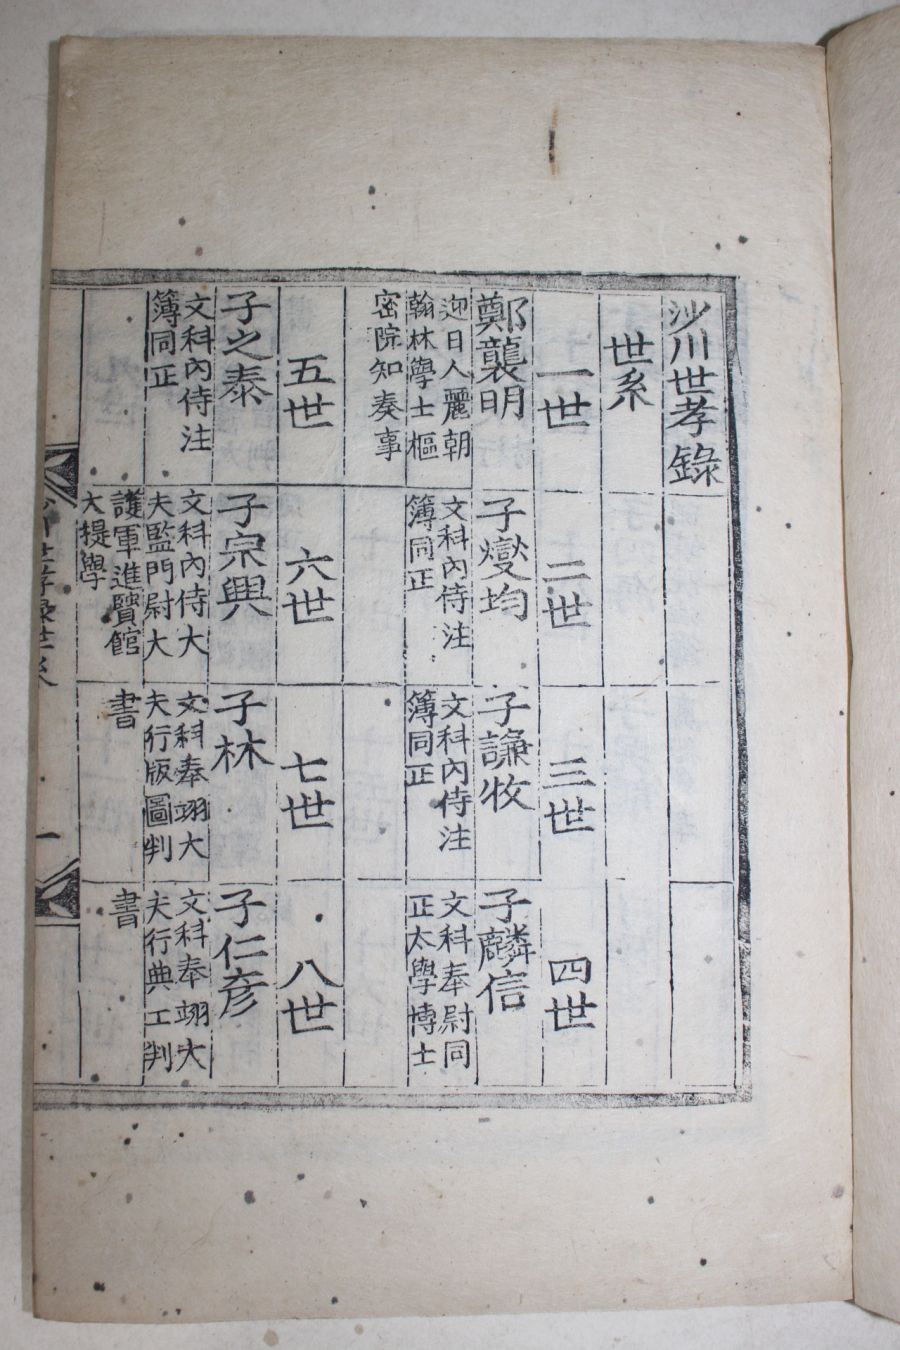 沙川世孝錄
世系
一世
鄭襲明
迎日人麗朝
翰林學士樞
密院知奏事
二世
子燮均
文科內侍注
簿同正
三世
子謙牧
文科內侍注
簿同正
四世
子麟信
文科奉尉同
正太學博士
五世
子之泰
文科內侍注
簿同正
六世
子宗興
文科內侍大
夫監門尉大
護軍進賢館
大提學
七世
子林
文科奉翊大
夫行版圖判
書
八世
子仁彦
文科奉翊大
夫行典工判
書
川世孝錄世系
一